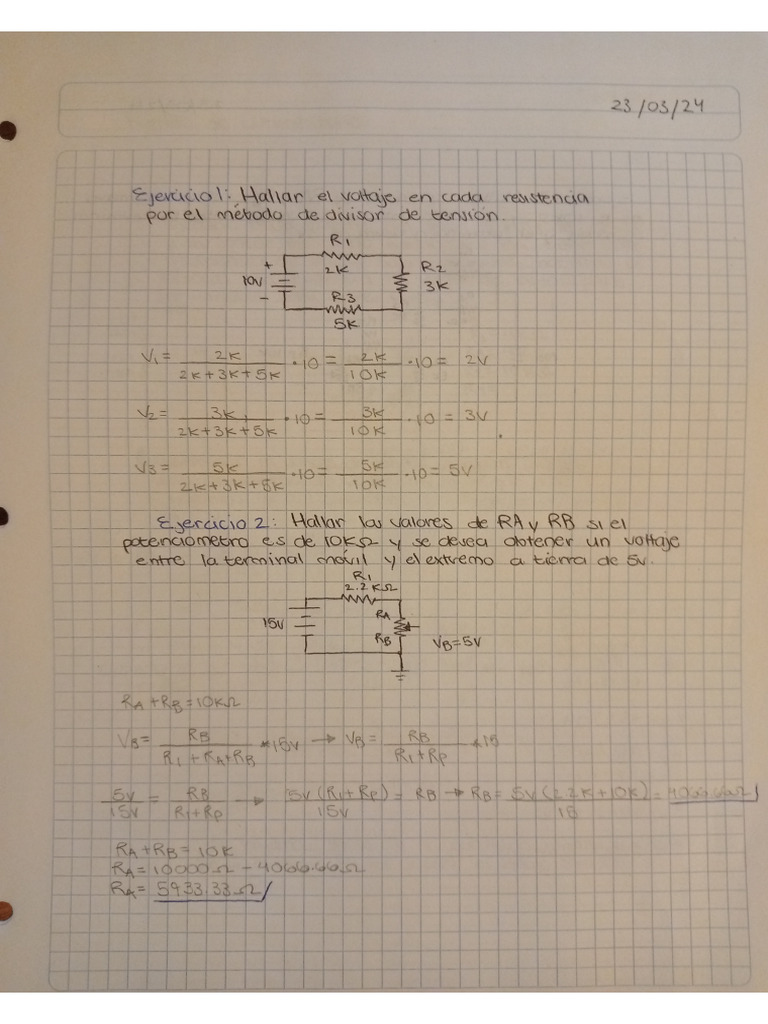 23/03/24
Ejercicio 1: Hallar el voltaje en cada resistencia
por el método de divisor de tensión.
R1
2K
R2
3K
10V
+
-
R3
5K
V1 = 2K / 2K+3K+5K · 10 = 2K / 10K · 10 = 2V
V2 = 3K / 2K+3K+5K · 10 = 3K / 10K · 10 = 3V
V3 = 5K / 2K+3K+5K · 10 = 5K / 10K · 10 = 5V
Ejercicio 2: Hallar las valores de RA y RB si el
potenciometro es de 10KΩ y se desea obtener un voltaje
entre la terminal móvil y el extremo a tierra de 5v.
R1
2.2KΩ
15V
RA
RB
VB=5V
RA+RB=10KΩ
VB= RB / R1+RA+RB *15v → VB= RB / R1+Rp *15
5v / 15v = RB / R1+Rp → 5v(R1+Rp) / 15v = RB → RB= 5v(2.2K+10K) / 15 = 4066.66Ω
RA+RB=10K
RA=10000Ω-4066.66Ω
RA= 5933.33Ω